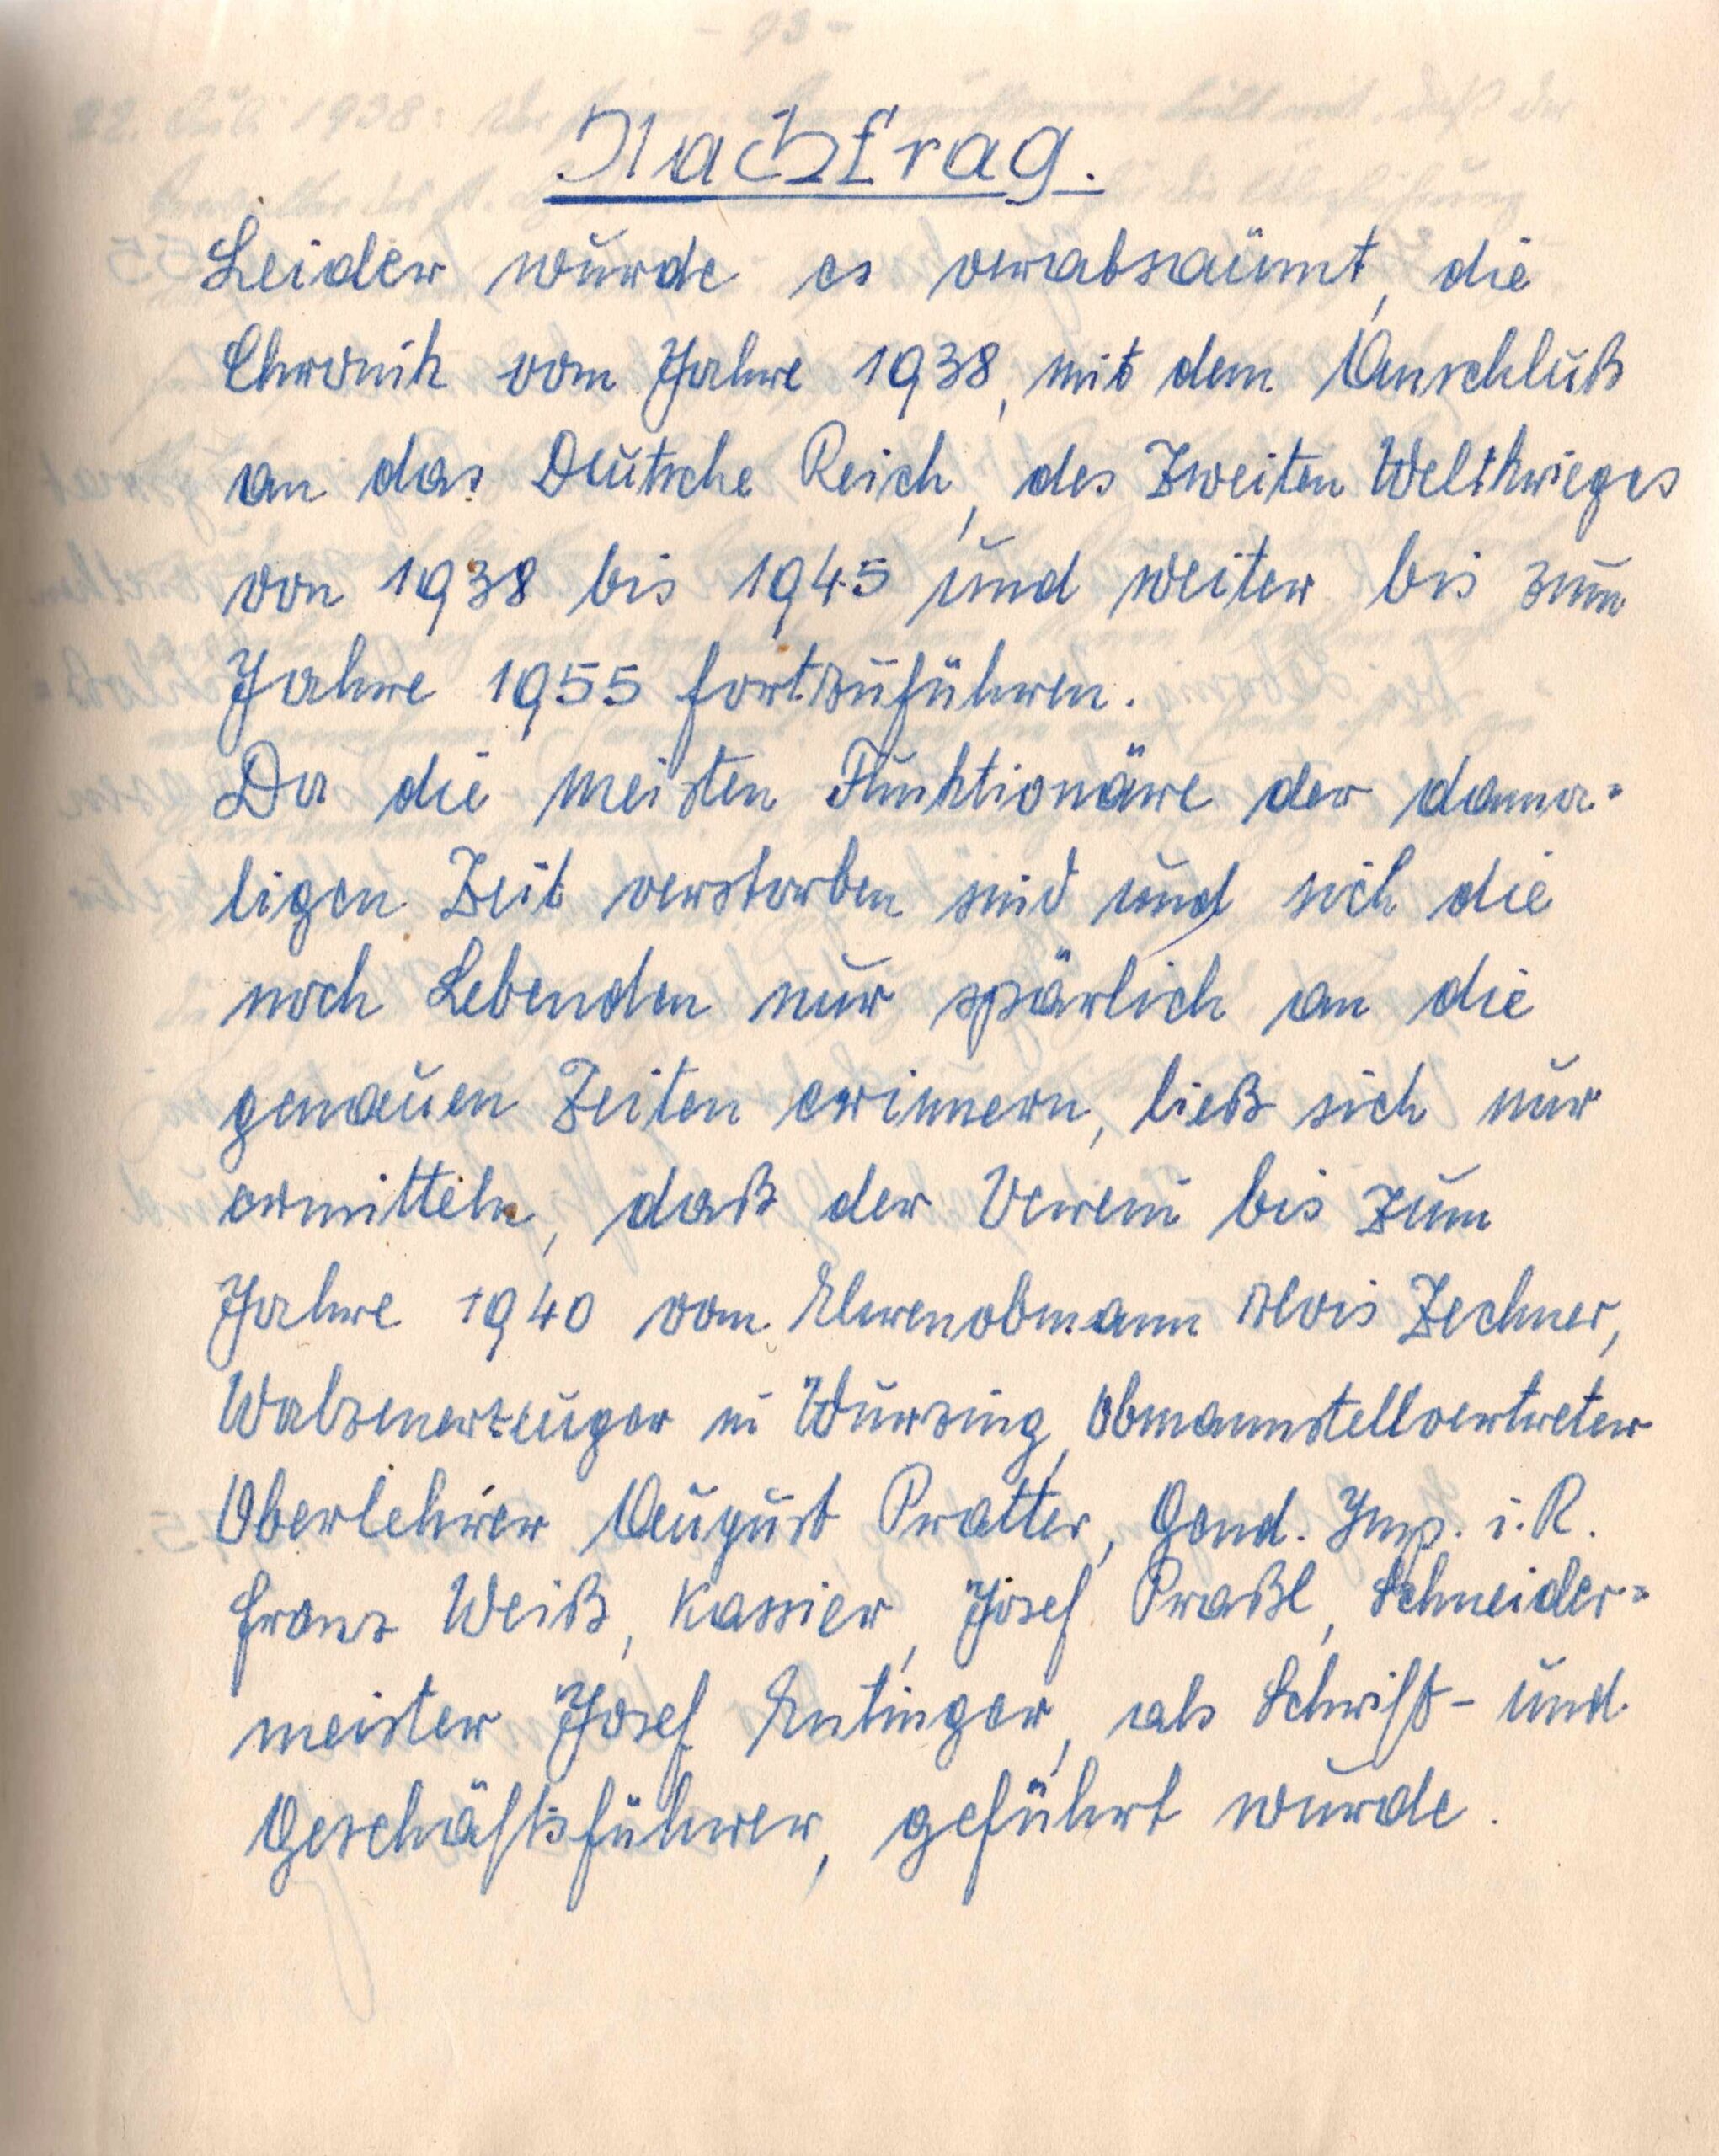 Nachtrag.
Leider wurde es verabsäumt, die
Chronik vom Jahre 1938, mit dem Anschluß
an das Deutsche Reich, des Zweiten Weltkrieges
von 1938 bis 1945 und weiter bis zum
Jahre 1955 fortzuführen.
Da die meisten Funktionäre der dama=
ligen Zeit verstorben sind und sich die
noch Lebenden nur spärlich an die
genauen Zeiten erinnern, ließ sich nur
ermitteln, daß der Verein bis zum
Jahre 1940 vom Ehrenobmann Alois Zechner,
Walzenerzeuger in Wurzing, Obmannstellvertreter
Oberlehrer August Pratter, Gend. Insp. i. R.
Franz Weiß, Kassier, Josef Praßl, Schneider=
meister Josef Entinger, als Schrift- und
Geschäftsführer, geführt wurde.